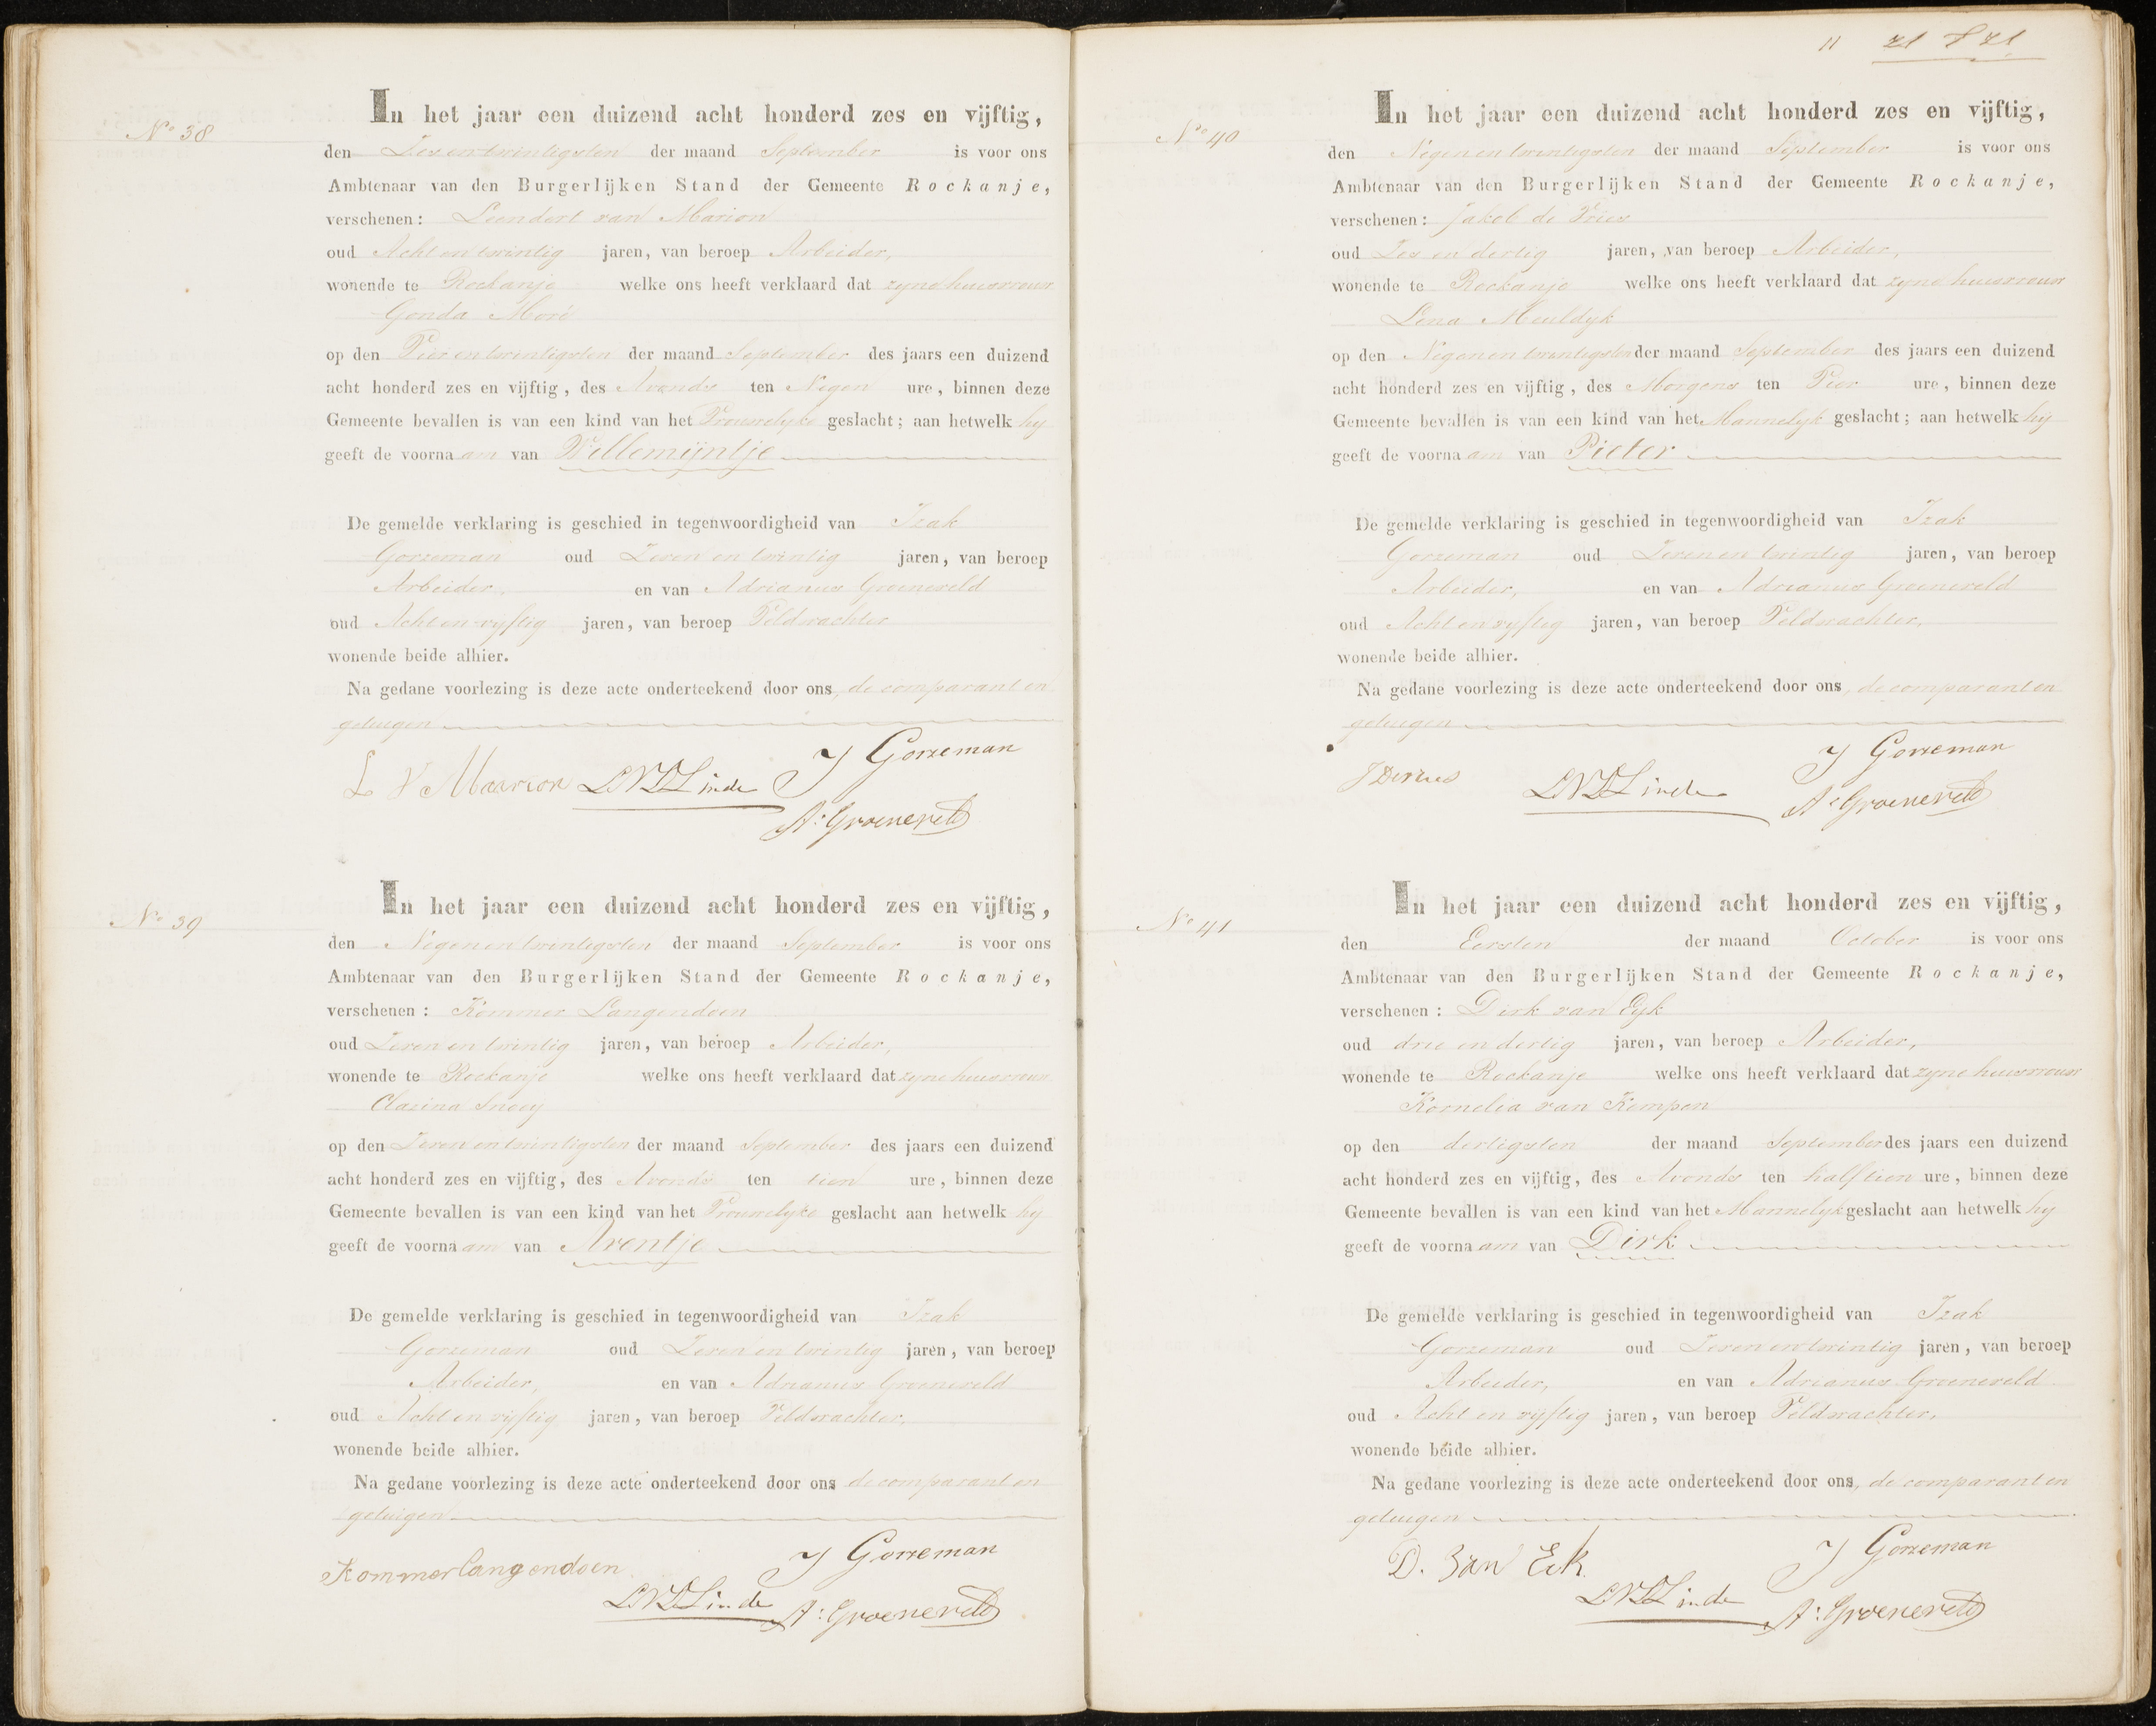 No 38
In het jaar een duizend acht honderd zes en vijftig,
den Zes en twintigsten der maand September is voor ons
Ambtenaar van den Burgerlijken Stand der Gemeente Rockanje,
verschenen: Leendert van Marion
oud Acht en twintig jaren, van beroep Arbeider,
wonende te Rockanje welke ons heeft verklaard dat zyne huisvrouw
Gonda Moré
op den Vier en twintigsten der maand September des jaars een duizend
acht honderd zes en vijftig, des Avonds ten Negen ure, binnen deze
Gemeente bevallen is van een kind van het Vrouwelyke geslacht; aan hetwelk hy
geeft de voornaam van Willemijntje
De gemelde verklaring is geschied in tegenwoordigheid van Izak
Gorzeman oud Zeven en twintig jaren, van beroep
Arbeider, en van Adrianus Groeneveld
oud Acht en vyftig jaren, van beroep Veldwachter
wonende beide alhier.
Na gedane voorlezing is deze acte onderteekend door ons, de comparant en
getuigen
L V Maarion LVDLinde J Gorzeman
A: Groeneveld
No 39
In het jaar een duizend acht honderd zes en vijftig,
den Negen en twintigsten der maand September is voor ons
Ambtenaar van den Burgerlijken Stand der Gemeente Rockanje,
verschenen: Kommer Langendoen
oud Zeven en twintig jaren, van beroep Arbeider,
wonende te Rockanje welke ons heeft verklaard dat zyne huisvrouw
Clazina Snoey
op den Zeven en twintigsten der maand September des jaars een duizend
acht honderd zes en vijftig, des Avonds ten tien ure, binnen deze
Gemeente bevallen is van een kind van het Vrouwelyke geslacht aan hetwelk hy
geeft de voornaam van Arentje
De gemelde verklaring is geschied in tegenwoordigheid van Izak
Gorzeman oud Zeven en twintig jaren, van beroep
Arbeider, en van Adrianus Groeneveld
oud Acht en vyftig jaren, van beroep Veldwachter,
wonende beide alhier.
Na gedane voorlezing is deze acte onderteekend door ons de comparant en
getuigen
Kommer Langendoen J Gorzeman
LVDLinde A: Groeneveld
11
No 40
In het jaar een duizend acht honderd zes en vijftig,
den Negen en twintigsten der maand September is voor ons
Ambtenaar van den Burgerlijken Stand der Gemeente Rockanje,
verschenen: Jakob de Vries
oud Zes en dertig jaren, van beroep Arbeider,
wonende te Rockanje welke ons heeft verklaard dat zyne huisvrouw
Lena Meuldyk
op den Negen en twintigsten der maand September des jaars een duizend
acht honderd zes en vijftig, des Morgens ten Vier ure, binnen deze
Gemeente bevallen is van een kind van het Mannelyk geslacht; aan hetwelk hy
geeft de voornaam van Pieter
De gemelde verklaring is geschied in tegenwoordigheid van Izak
Gorzeman oud Zeven en twintig jaren, van beroep
Arbeider, en van Adrianus Groeneveld
oud Acht en vyftig jaren, van beroep Veldwachter,
wonende beide alhier.
Na gedane voorlezing is deze acte onderteekend door ons, de comparant en
getuigen
J Devries LVDLinde J Gorzeman
A: Groeneveld
No 41
In het jaar een duizend acht honderd zes en vijftig,
den Eersten der maand October is voor ons
Ambtenaar van den Burgerlijken Stand der Gemeente Rockanje,
verschenen: Dirk van Eyk
oud drie en dertig jaren, van beroep Arbeider,
wonende te Rockanje welke ons heeft verklaard dat zyne huisvrouw
Kornelia van Kempen
op den dertigsten der maand September des jaars een duizend
acht honderd zes en vijftig, des Avonds ten half tien ure, binnen deze
Gemeente bevallen is van een kind van het Mannelyk geslacht aan hetwelk hy
geeft de voornaam van Dirk
De gemelde verklaring is geschied in tegenwoordigheid van Izak
Gorzeman oud Zeven en twintig jaren, van beroep
Arbeider, en van Adrianus Groeneveld
oud Acht en vyftig jaren, van beroep Veldwachter,
wonende beide alhier.
Na gedane voorlezing is deze acte onderteekend door ons, de comparant en
getuigen
D. Van Eck J Gorzeman
LVDLinde A: Groeneveld